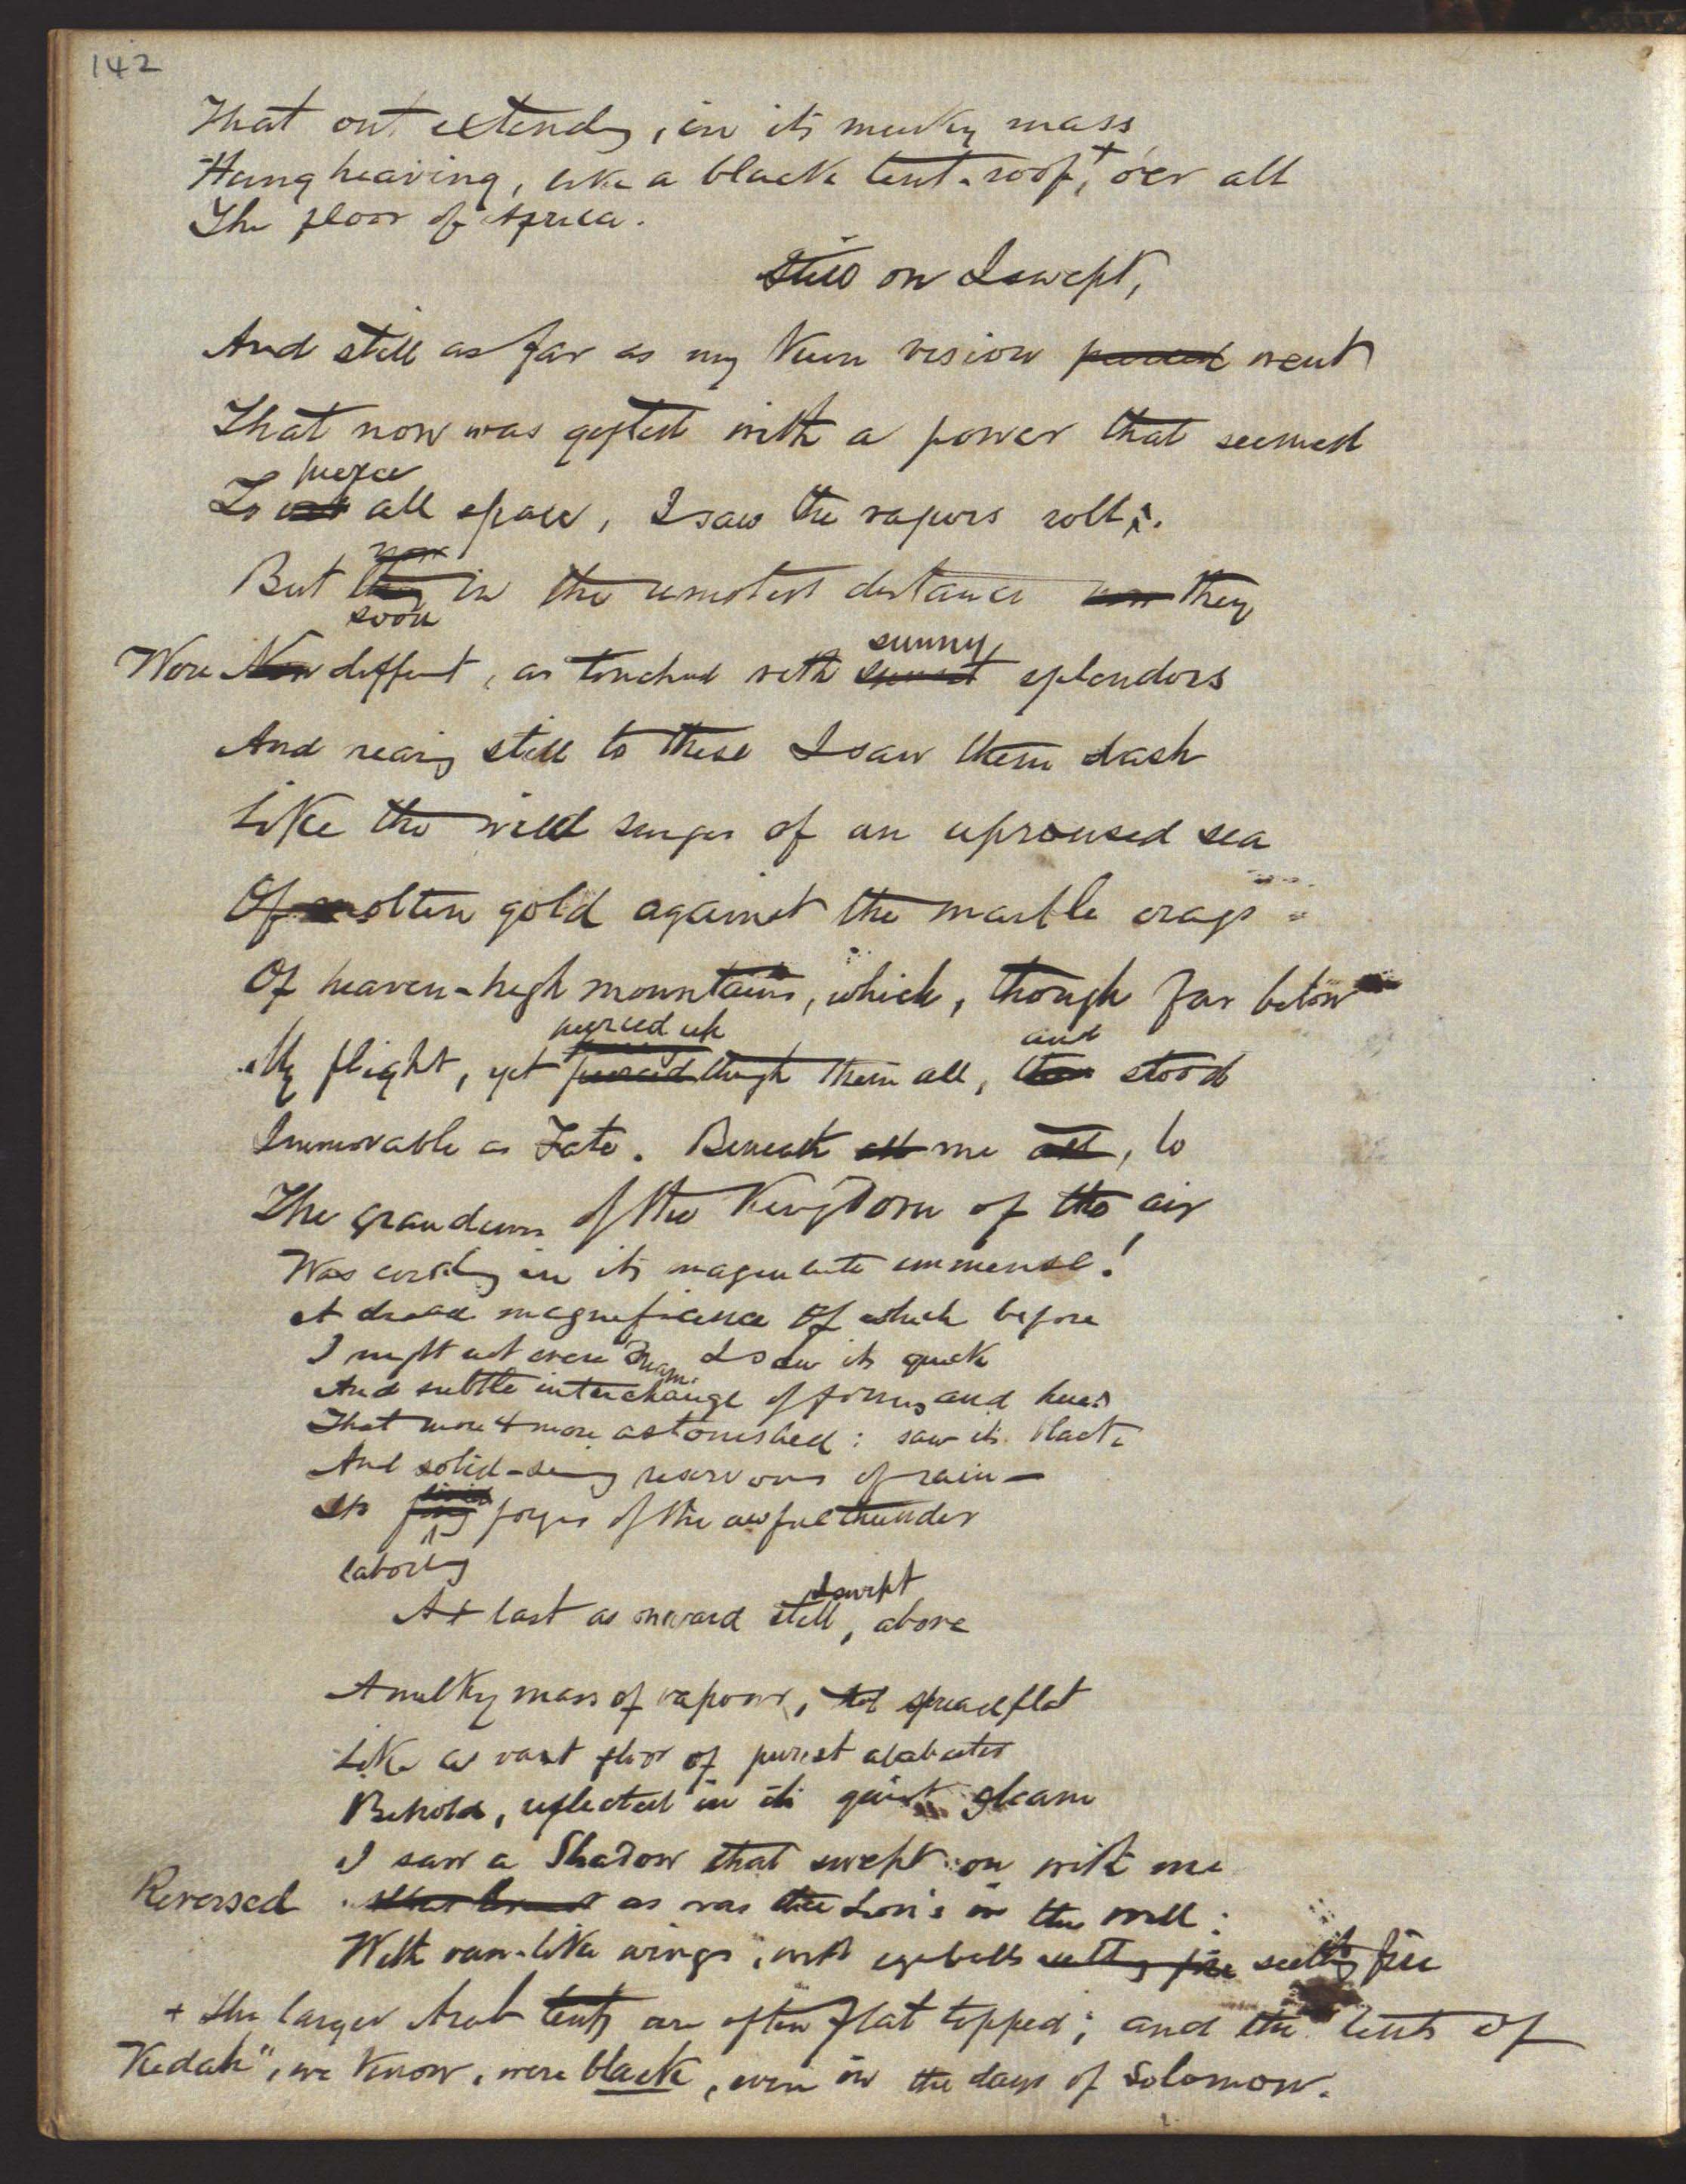 142
That out extending, in its murky mass
Hung heaving, like a black tent-roof,+ o'er all
The floor of Africa.
Still on I swept,
And still as far as my keen vision went
That now was gifted with a power that seemed
pierce
To all space, I saw the vapors roll;
But in the remotest distance they
soon
sunny
Wore different, as touched with splendors
And nearing still to these I saw them dash
Like the wild surges of an uproused sea
Of molten gold against the marble crags
Of heaven-high mountains, which, though far below
pierced up and
My flight, yet through them all, stood
Immovable as Fate. Beneath me, lo
The grandeurs of the Kingdom of the air
Was circling in its magnitude immense!
A dread magnificence of which before
I might not even dream. I saw its quick
And subtle interchange of forms and hues
That more & more astonished: saw its black
And solid-seeming reservoirs of rain—
Its forges of the awful thunder
laboring
I swept
At last as onward still, above
A milky mass of vapour, spread flat
Like a vast floor of purest alabaster
Behold, reflected in its quiet gleam
I saw a Shadow that swept on with me
Reversed as was the Lion's in the well:
With van-like wings, with eyeballs seething fire
+ The larger Arab tents are often flat topped; and the "tents of
Kedah", we know, were black, even in the days of Solomon.